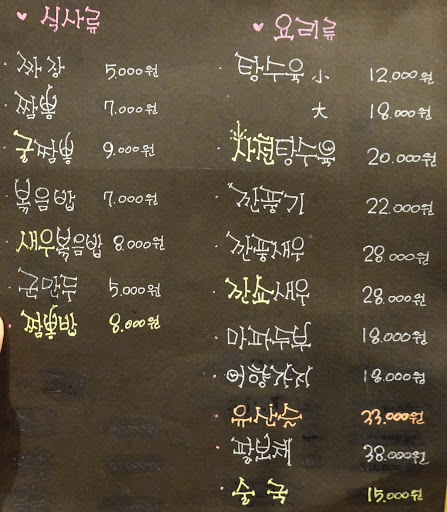 ♥ 식사류
짜장 5.000원
짬뽕 7.000원
굴짬뽕 9.000원
볶음밥 7.000원
새우볶음밥 8.000원
군만두 5.000원
짬뽕밥 8.000원
♥ 요리류
탕수육 小 12.000원
大 18.000원
사천탕수육 20.000원
깐풍기 22.000원
깐풍새우 28.000원
깐쇼새우 28.000원
마파두부 18.000원
어향가지 18.000원
유산슬 33.000원
팔보채 38.000원
술국 15.000원